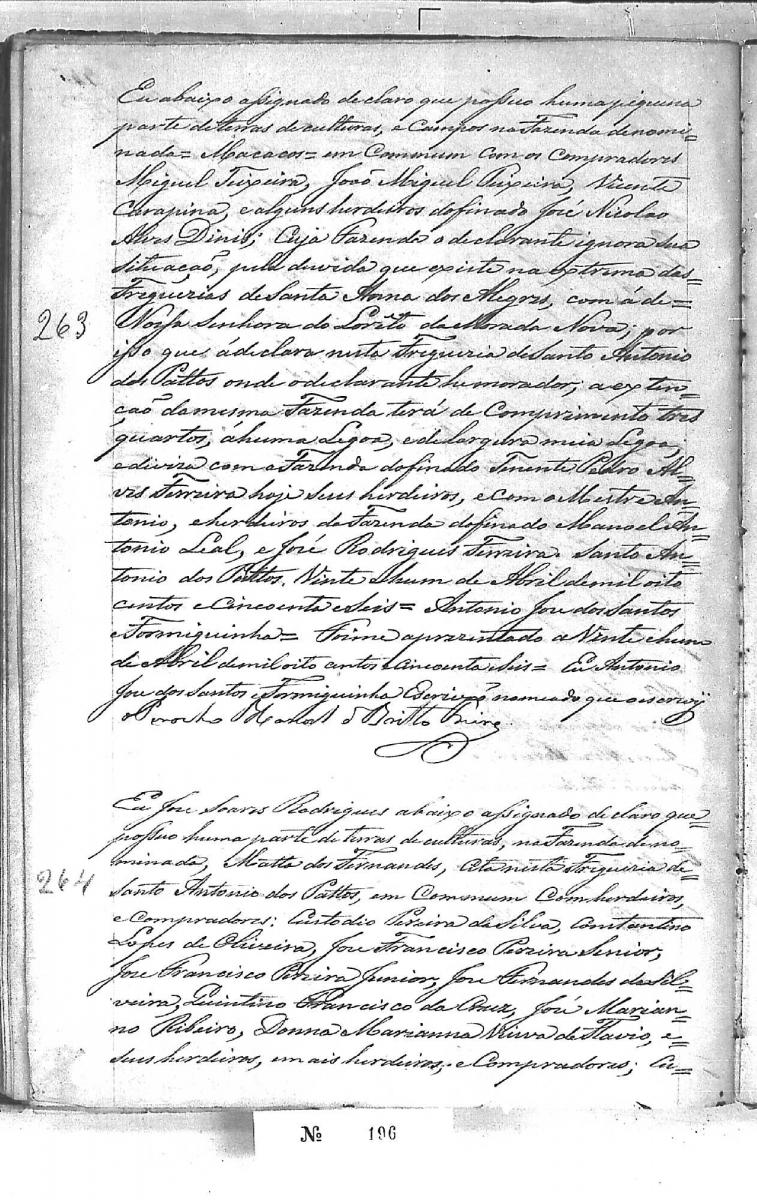 Eu abaixo assignado declaro que possuo huma piquena
parte de terras de culturas, e Campos na Fazenda denomi-
nada= Macacos= em Commum com os Compradores
Miguel Teixeira, João Miguel Teixeira, Vicente
Carapina, e alguns herdeiros do finado José Nicolao
Alves Diniz; Cuja Fazenda o declarante ignora sua
situação, pela duvida que existe na extrema das=
Freguezias de Santa Anna dos Alegres, com á de=
263
Nossa Senhora do Loreto da Morada Nova; por
isso que á declara nesta Freguezia de Santo Antonio
dos Pattos onde o declarante he morador; a exten-
ção da mesma Fazenda terá de Comprimento tres
quartos, á huma Legoa, e de Largura meia Legoa,
e diviza com a Fazenda do finado Tenente Pedro Al=
ves Ferreira hoje seus herdeiros, e com o Mestre An=
tonio, e herdeiros da Fazenda do finado Manoel An=
tonio Leal, e José Rodrigues Ferreira. Santo An=
tonio dos Pattos, Vinte e hum de Abril de mil oito
centos e Cincoenta e Seis= Antonio Joe dos Santos
e Formiguinha= Foi me aprezentado a Vinte e hum
de Abril de mil oito centos e Cincoenta e Seis= Eu Antonio
Joe dos Santos e Formiguinha Escrivão nomeado que o escrevy
o Parocho Manoel de Britto Freire
Eu Joe Soares Rodrigues abaixo assignado declaro que=
possuo huma parte de terras de culturas, na Fazenda deno-
minada, Matta dos Fernandes, Cita nesta Freguezia de=
264
Santo Antonio dos Pattos, em Commum Com herdeiros,
e Compradores: Custodio Pereira da Silva, Constantino
Lopes de Oliveira, Joe Francisco Pereira Senior,
Joe Francisco Pereira Junior, Joe Fernandes da Sil=
veira, Quintino Francisco da Cruz, José Marian=
no Ribeiro, Donna Marianna Viuva de Flavio, e=
seus herdeiros, e mais herdeiros, e Compradores; Cu=
No 196